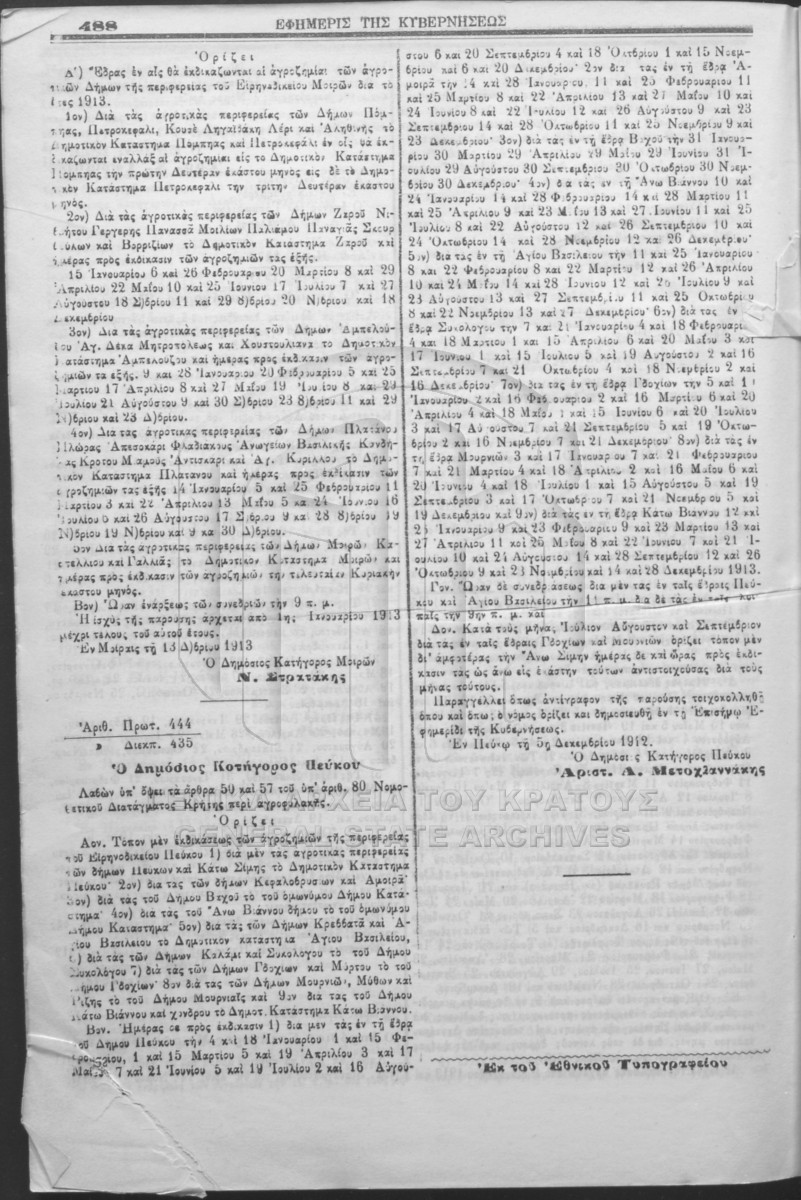 488
ΕΦΗΜΕΡΙΣ ΤΗΣ ΚΥΒΕΡΝΗΣΕΩΣ
Ὁρίζει
Α') Ἕδρας ἐν αἷς θὰ ἐκδικάζωνται αἱ ἀγροζημίαι τῶν ἀγρο-
Δήμων τῆς περιφερείας τοῦ Εἰρηνοδικείου Μοιρῶν διὰ τὸ
ἔτος 1913.
1ον) Διὰ τὰς ἀγροτικὰς περιφερείας τῶν Δήμων Πόμ-
πηας, Πετροκεφαλι, Κουσὲ Ληγαϊδάκη Λέρι καὶ Ἀληθινῆς τὸ
Δημοτικὸν Κατάστημα Πόμπηας καὶ Πετροκεφάλι ἐν οἷς θὰ ἐκ-
δικάζωνται ἐναλλὰξ αἱ ἀγροζημίαι εἰς τὸ Δημοτικὸν Κατάστημα
Πόμπηας τὴν πρώτην Δευτέραν ἑκάστου μηνὸς εἰς δὲ τὸ Δημο-
τικὸν Κατάστημα Πετροκεφάλι τὴν τρίτην Δευτέραν ἑκάστου
μηνός.
2ον) Διὰ τὰς ἀγροτικὰς περιφερείας τῶν Δήμων Ζαροῦ Νι-
Γέργερης Πανασσᾶ Μοιλίων Παναγιᾶς Σκουρ
καὶ Βορριζίων τὸ Δημοτικὸν Κατάστημα Ζαροῦ καὶ
ἡμέρας πρὸς ἐκδίκασιν τῶν ἀγροζημιῶν τὰς ἑξῆς.
15 Ἰανουαρίου 6 καὶ 26 Φεβρουαρίου 20 Μαρτίου 8 καὶ 29
Ἀπριλίου 22 Μαΐου 10 καὶ 25 Ἰουνίου 17 Ἰουλίου 7 καὶ 27
Αὐγούστου 18 Σ)βρίου 11 καὶ 29 8)βρίου 20 Ν)βρίου καὶ 18
Δεκεμβρίου
3ον) Διὰ τὰς ἀγροτικὰς περιφερείας τῶν Δήμων Ἀμπελού-
ζου Ἁγ. Δέκα Μητροπόλεως καὶ Χουστουλιανὰ τὸ Δημοτικὸν
Κατάστημα Ἀμπελούζου καὶ ἡμέρας πρὸς ἐκδίκασιν τῶν ἀγρο-
ζημιῶν τὰ ἑξῆς. 9 καὶ 28 Ἰανουαρίου 20 Φεβρουαρίου 5 καὶ 25
Μαρτίου 17 Ἀπριλίου 8 καὶ 27 Μαΐου 19 Ἰουνίου 8 καὶ 29
Ἰουλίου 21 Αὐγούστου 9 καὶ 30 Σ)βρίου 23 8)βρίου 11 καὶ 29
Ν)βρίου καὶ 23 Δ)βρίου.
4ον) Διὰ τὰς ἀγροτικὰς περιφερείας τῶν Δήμων Πλατάνου
Πλώρας Ἀπεσοκάρι Φλαθιάκους Ἀνωγείων Βασιλικῆς
Κρότου Μιαμοὺς Ἀντισκάρι καὶ Ἁγ. Κυρίλλου τὸ Δημο-
τικὸν Κατάστημα Πλατάνου καὶ ἡμέρας πρὸς ἐκδίκασιν τῶν
ἀγροζημιῶν τὰς ἑξῆς 14 Ἰανουαρίου 5 καὶ 25 Φεβρουαρίου 11
Μαρτίου 3 καὶ 22 Ἀπριλίου 13 Μαΐου 5 καὶ 24 Ἰουνίου 16
Ἰουλίου 6 καὶ 26 Αὐγούστου 17 Σ)βρίου 9 καὶ 28 8)βρίου 19
Ν)βρίου 19 Ν)βρίου καὶ 9 καὶ 30 Δ)βρίου.
5ον Διὰ τὰς ἀγροτικὰς περιφερείας τῶν Δήμων Μοιρῶν Κα-
στελλίου καὶ Γαλλιᾶς τὸ Δημοτικὸν Κατάστημα Μοιρῶν καὶ
ἡμέρας πρὸς ἐκδίκασιν τῶν ἀγροζημιῶν τὴν τελευταίαν Κυριακὴν
ἑκάστου μηνός.
Βον) Ὥραν ἐνάρξεως τῶν συνεδριῶν τὴν 9 π. μ.
Ἡ ἰσχὺς τῆς παρούσης ἄρχεται ἀπὸ 1ης Ἰανουαρίου 1913
μέχρι τέλους τοῦ αὐτοῦ ἔτους.
Ἐν Μοίραις τῇ 13 Δ)βρίου 1913
Ὁ Δημόσιος Κατήγορος Μοιρῶν
Ν. Στρατάκης
Ἀριθ. Πρωτ. 444
» Διεκπ. 435
Ὁ Δημόσιος Κοτήγορος Πεύκου
Λαβὼν ὑπ' ὄψει τὰ ἄρθρα 50 καὶ 57 τοῦ ὑπ' ἀριθ. 80 Νομο-
θετικοῦ Διατάγματος Κρήτης περὶ ἀγροφυλακῆς.
Ὁρίζει
Αον. Τόπον μὲν ἐκδικάσεως τῶν ἀγροζημιῶν τῆς περιφερείας
τοῦ Εἰρηνοδικείου Πεύκου 1) διὰ μὲν τὰς ἀγροτικὰς περιφερείας
τῶν δήμων Πεύκων καὶ Κάτω Σίμης τὸ Δημοτικὸν Κατάστημα
Πεύκου· 2ον) διὰ τὰς τῶν δήμων Κεφαλοβρυσίων καὶ Ἀμοιρᾶ·
3ον) διὰ τὰς τοῦ Δήμου Βαχοῦ τὸ τοῦ ὁμωνύμου Δήμου Κατά-
στημα· 4ον) διὰ τὰς τοῦ Ἄνω Βιάννου δήμου τὸ τοῦ ὁμωνύμου
Δήμου Κατάστημα· 5ον) διὰ τὰς τῶν Δήμων Κρεββατᾶ καὶ Ἁ-
γίου Βασιλείου τὸ Δημοτικὸν κατάστημα Ἁγίου Βασιλείου,
6) διὰ τὰς τῶν Δήμων Καλάμι καὶ Συκολόγου τὸ τοῦ Δήμου
Συκολόγου 7) διὰ τὰς τῶν Δήμων Γδοχίων καὶ Μύρτου τὸ τοῦ
Δήμου Γδοχίων· 8ον διὰ τὰς τῶν Δήμων Μουρνιῶν, Μύθων καὶ
Ρίζης τὸ τοῦ Δήμου Μουρνιαῖς καὶ 9ον διὰ τὰς τοῦ Δήμου
Κάτω Βιάννου καὶ χόνδρου τὸ Δημοτ. Κατάστημα Κάτω Βιάννου.
Βον. Ἡμέρας δὲ πρὸς ἐκδίκασιν 1) διὰ μὲν τὰς ἐν τῇ ἕδρᾳ
τοῦ Δήμου Πεύκου τὴν 4 καὶ 18 Ἰανουαρίου 1 καὶ 15 Φε-
βρουαρίου, 1 καὶ 15 Μαρτίου 5 καὶ 19 Ἀπριλίου 3 καὶ 17
Μαΐου 7 καὶ 21 Ἰουνίου 5 καὶ 19 Ἰουλίου 2 καὶ 16 Αὐγού-
στου 6 καὶ 20 Σεπτεμβρίου 4 καὶ 18 Ὀκτωβρίου 1 καὶ 15 Νοεμ-
βρίου καὶ 6 καὶ 20 Δεκεμβρίου· 2ον διὰ τὰς ἐν τῇ ἕδρᾳ Ἀ-
μοιρᾶ τὴν 14 καὶ 28 Ἰανουαρίου. 11 καὶ 25 Φεβρουαρίου 11
καὶ 25 Μαρτίου 8 καὶ 22 Ἀπριλίου 13 καὶ 27 Μαΐου 10 καὶ
24 Ἰουνίου 8 καὶ 22 Ἰουλίου 12 καὶ 26 Αὐγούστου 9 καὶ 23
Σεπτεμβρίου 14 καὶ 28 Ὀκτωβρίου 11 καὶ 25 Νοεμβρίου 9 καὶ
23 Δεκεμβρίου· 3ον) διὰ τὰς ἐν τῇ ἕδρᾳ Βαχοῦ τὴν 31 Ἰανουα-
ρίου 30 Μαρτίου 29 Ἀπριλίου 29 Μαΐου 29 Ἰουνίου 31 Ἰ-
ουλίου 29 Αὐγούστου 30 Σεπτεμβρίου 30 Ὀκτωβρίου 30 Νοεμ-
βρίου 30 Δεκεμβρίου· 4ον) διὰ τὰς ἐν τῇ Ἄνω Βιάννου 10 καὶ
24 Ἰανουαρίου 14 καὶ 28 Φεβρουαρίου 14 καὶ 28 Μαρτίου 11
καὶ 25 Ἀπριλίου 9 καὶ 23 Μαΐου 13 καὶ 27 Ἰουνίου 11 καὶ 25
Ἰουλίου 8 καὶ 22 Αὐγούστου 12 καὶ 26 Σεπτεμβρίου 10 καὶ
24 Ὀκτωβρίου 14 καὶ 28 Νοεμβρίου 12 καὶ 26 Δεκεμβρίου·
5ον) διὰ τὰς ἐν τῇ Ἁγίου Βασιλείου τὴν 11 καὶ 25 Ἰανουαρίου
8 καὶ 22 Φεβρουαρίου 8 καὶ 22 Μαρτίου 12 καὶ 26 Ἀπριλίου
10 καὶ 24 Μαΐου 14 καὶ 28 Ἰουνίου 12 καὶ 26 Ἰουλίου 9 καὶ
23 Αὐγούστου 13 καὶ 27 Σεπτεμβρίου 11 καὶ 25 Ὀκτωβρίου
8 καὶ 22 Νοεμβρίου 13 καὶ 27 Δεκεμβρίου· 6ον) διὰ τὰς ἐν
ἕδρᾳ Συκολόγου τὴν 7 καὶ 21 Ἰανουαρίου 4 καὶ 18 Φεβρουαρίου
4 καὶ 18 Μαρτίου 1 καὶ 15 Ἀπριλίου 6 καὶ 20 Μαΐου 3 καὶ
17 Ἰουνίου 1 καὶ 15 Ἰουλίου 5 καὶ 19 Αὐγούστου 2 καὶ 16
Σεπτεμβρίου 7 καὶ 21 Ὀκτωβρίου 4 καὶ 18 Νοεμβρίου 2 καὶ
16 Δεκεμβρίου· 7ον) διὰ τὰς ἐν τῇ ἕδρᾳ Γδοχίων τὴν 5 καὶ
Ἰανουαρίου 2 καὶ 16 Φεβρουαρίου 2 καὶ 16 Μαρτίου 6 καὶ 20
Ἀπριλίου 4 καὶ 18 Μαΐου 1 καὶ 15 Ἰουνίου 6 καὶ 20 Ἰουλίου
3 καὶ 17 Αὐγούστου 7 καὶ 21 Σεπτεμβρίου 5 καὶ 19 Ὀκτω-
βρίου 2 καὶ 16 Νοεμβρίου 7 καὶ 21 Δεκεμβρίου· 8ον) διὰ τὰς ἐν
τῇ ἕδρᾳ Μουρνιῶν 3 καὶ 17 Ἰανουαρίου 7 καὶ 21 Φεβρουαρίου
7 καὶ 21 Μαρτίου 4 καὶ 18 Ἀπριλίου 2 καὶ 16 Μαΐου 6 καὶ
20 Ἰουνίου 4 καὶ 18 Ἰουλίου 1 καὶ 15 Αὐγούστου 5 καὶ 19
Σεπτεμβρίου 3 καὶ 17 Ὀκτωβρίου 7 καὶ 21 Νοεμβρίου 5 καὶ
19 Δεκεμβρίου καὶ 9ον) διὰ τὰς ἐν τῇ ἕδρᾳ Κάτω Βιάννου 12 καὶ
Ἰανουαρίου 9 καὶ 23 Φεβρουαρίου 9 καὶ 23 Μαρτίου 13 καὶ
27 Ἀπριλίου 11 καὶ 25 Μαΐου 8 καὶ 22 Ἰουνίου 7 καὶ 21 Ἰ-
ουλίου 10 καὶ 24 Αὐγούστου 14 καὶ 28 Σεπτεμβρίου 12 καὶ 26
Ὀκτωβρίου 9 καὶ 23 Νοεμβρίου καὶ 14 καὶ 28 Δεκεμβρίου 1913.
Γον. Ὥραν δὲ συνεδριάσεως διὰ μὲν τὰς ἐν ταῖς ἕδραις Πεύ-
κου καὶ Ἁγίου Βασιλείου τὴν 11 π. μ. διὰ δὲ τὰς ἐν ταῖς λοι-
παῖς τὴν 9ην π. μ. καὶ
Δον. Κατὰ τοὺς μῆνας Ἰούλιον Αὔγουστον καὶ Σεπτέμβριον
διὰ τὰς ἐν ταῖς ἕδραις Γδοχίων καὶ Μουρνιῶν ὁρίζει τόπον μὲν
δι' ἀμφοτέρας τὴν Ἄνω Σίμην ἡμέρας δὲ καὶ ὥρας πρὸς ἐκδί-
κασιν τὰς ὡς ἄνω εἰς ἑκάστην τούτων ἀντιστοιχούσας διὰ τοὺς
μῆνας τούτους.
Παραγγέλλει ὅπως ἀντίγραφον τῆς παρούσης τοιχοκολληθῇ
ὅπου καὶ ὅπως ὁ νόμος ὁρίζει καὶ δημοσιευθῇ ἐν τῇ Ἐπισήμῳ Ἐ-
φημερίδι τῆς Κυβερνήσεως.
Ἐν Πεύκῳ τῇ 5ῃ Δεκεμβρίου 1912.
Ὁ Δημόσιος Κατήγορος Πεύκου
Ἀριστ. Α. Μετοχιαννάκης
ΑΡΧΕΙΑ ΤΟΥ ΚΡΑΤΟΥΣ
GENERAL STATE ARCHIVES
Ἐκ τοῦ Ἐθνικοῦ Τυπογραφείου